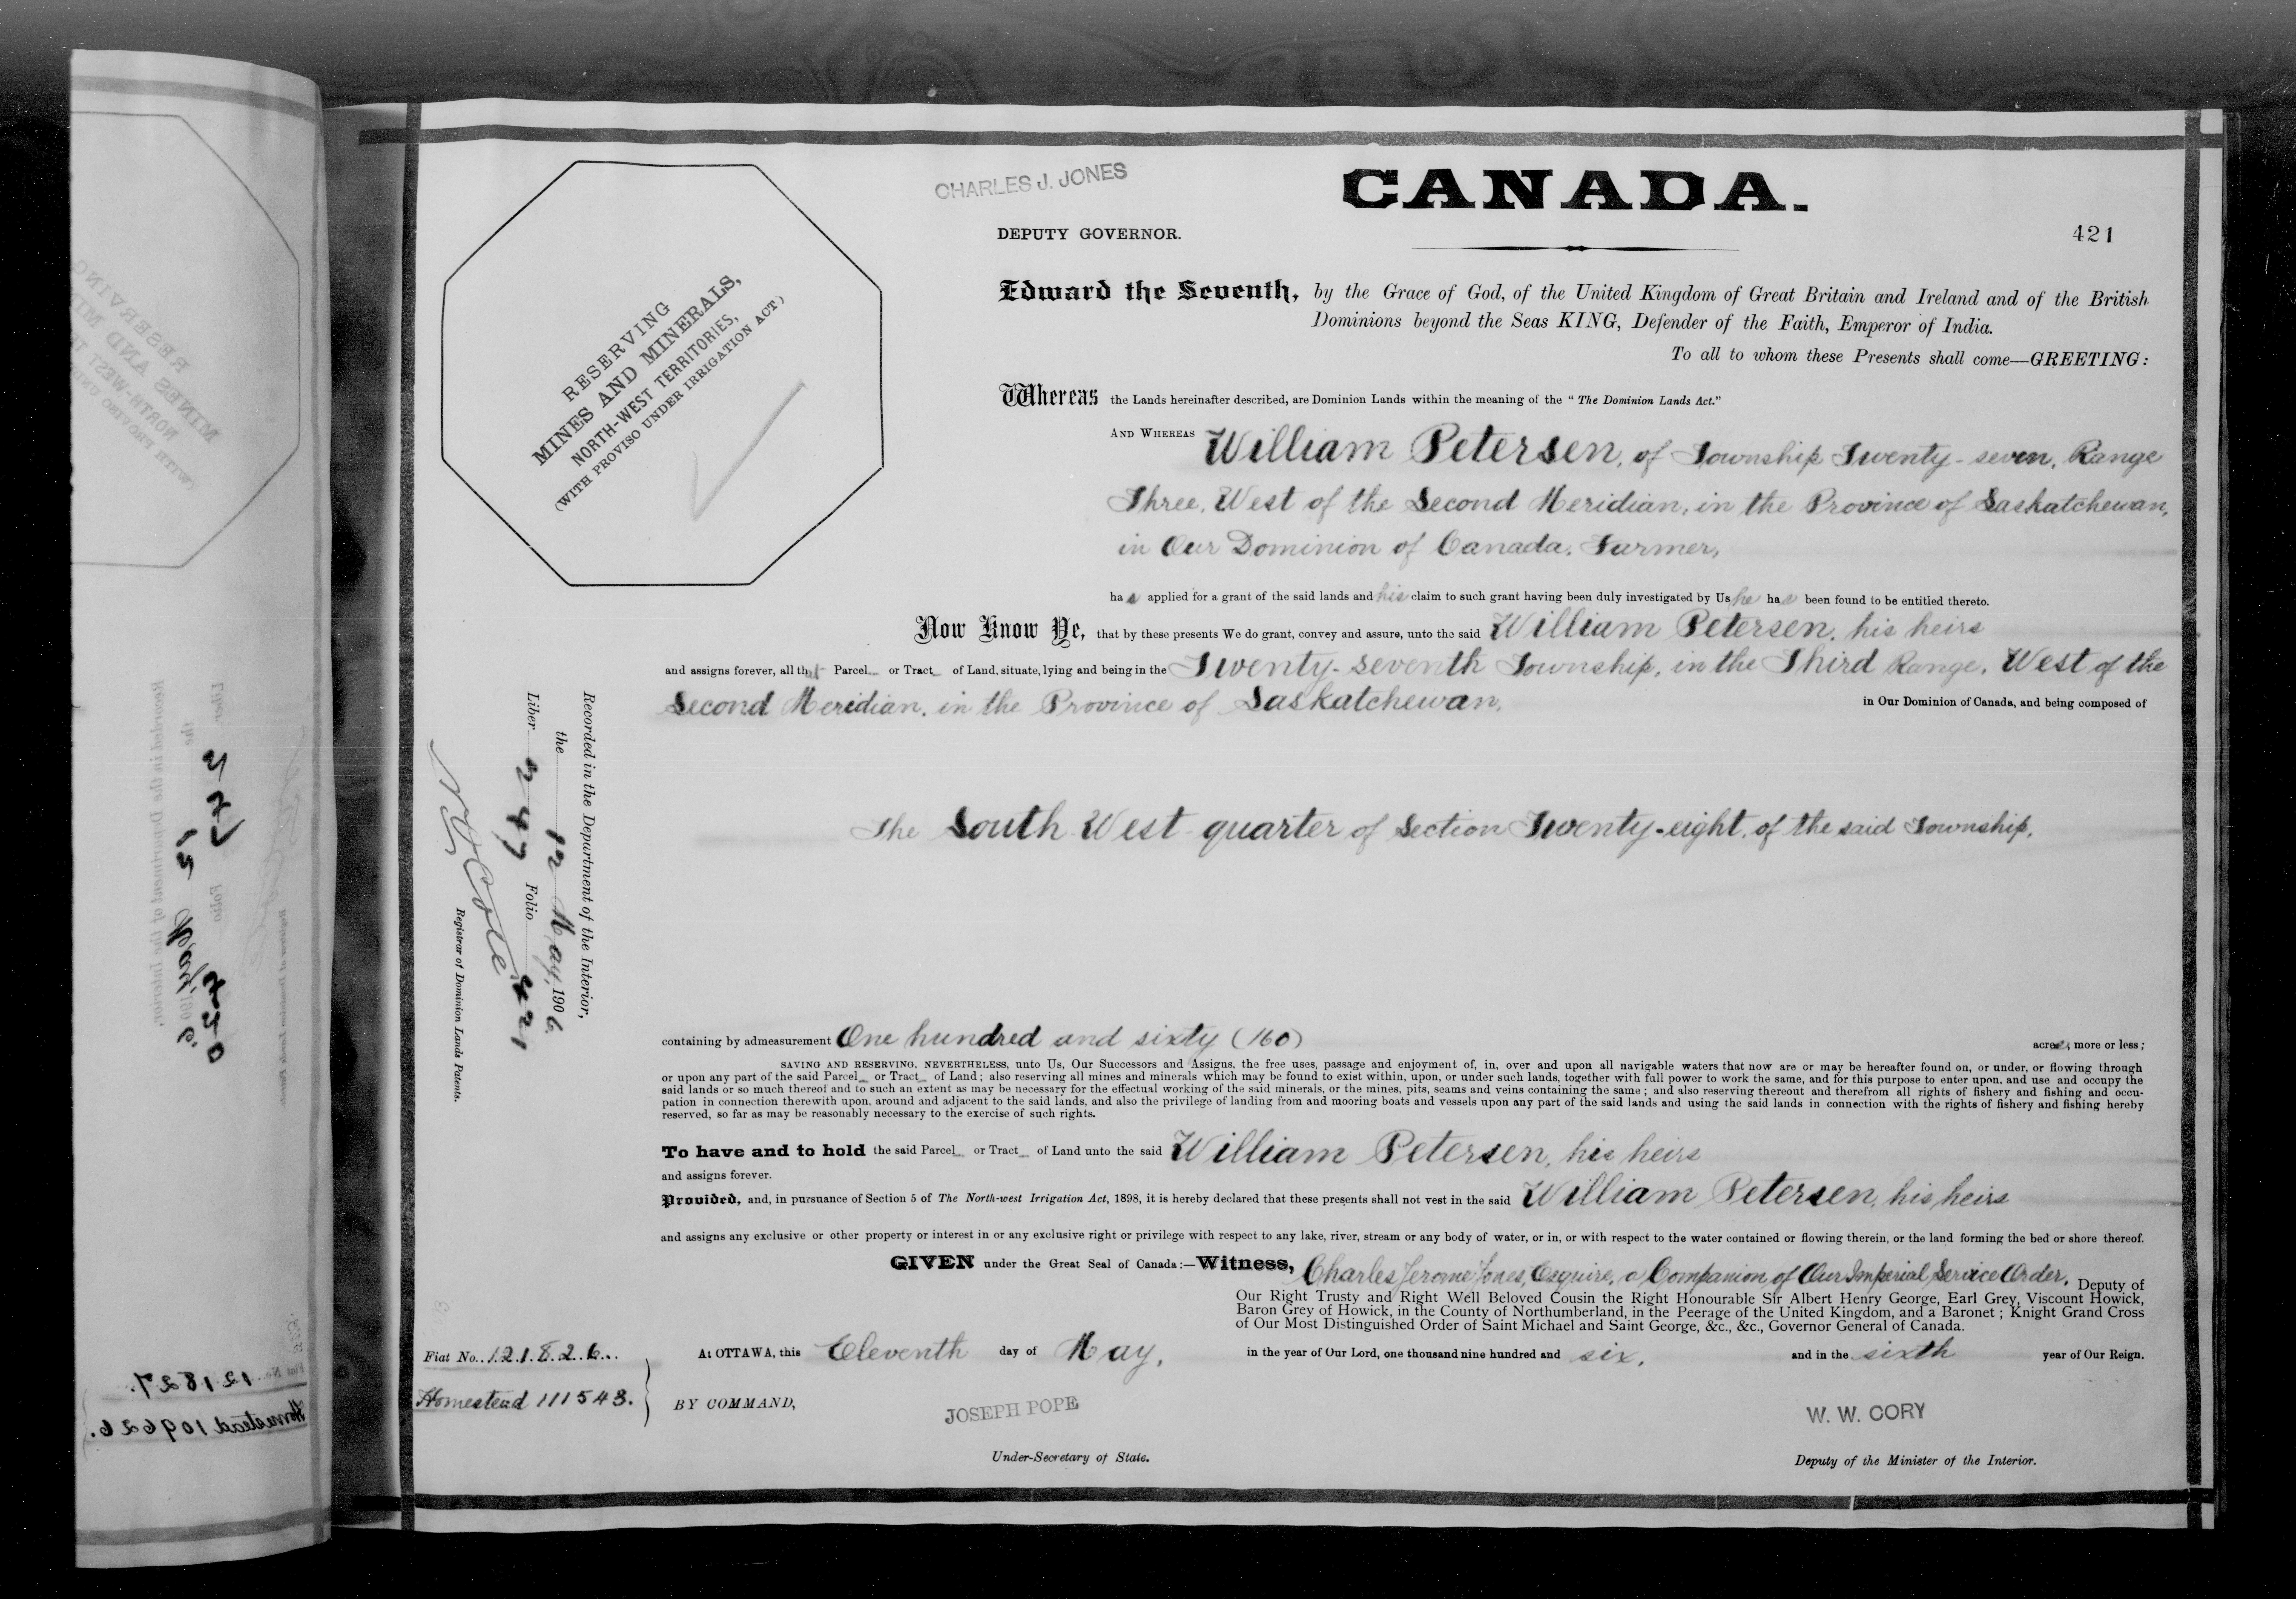 CHARLES J. JONES
CANADA.
DEPUTY GOVERNOR.
421
RESERVING
MINES AND MINERALS,
NORTH-WEST TERRITORIES,
(WITH PROVISO UNDER IRRIGATION ACT)
Edward the Seventh, by the Grace of God, of the United Kingdom of Great Britain and Ireland and of the British
Dominions beyond the Seas KING, Defender of the Faith, Emperor of India.
To all to whom these Presents shall come—GREETING:
Whereas the Lands hereinafter described, are Dominion Lands within the meaning of the "The Dominion Lands Act."
AND WHEREAS William Petersen, of Township Twenty-seven, Range
Three, West of the Second Meridian, in the Province of Saskatchewan,
in Our Dominion of Canada, Farmer,
has applied for a grant of the said lands and his claim to such grant having been duly investigated by Us he has been found to be entitled thereto.
Now Know Ye, that by these presents We do grant, convey and assure, unto the said William Petersen, his heirs
and assigns forever, all that Parcel or Tract of Land, situate, lying and being in the Twenty-seventh Township, in the Third Range, West of the
Second Meridian, in the Province of Saskatchewan, in Our Dominion of Canada, and being composed of
The South West quarter of Section Twenty-eight, of the said Township,
containing by admeasurement One hundred and sixty (160) acres, more or less;
SAVING AND RESERVING, NEVERTHELESS, unto Us, Our Successors and Assigns, the free uses, passage and enjoyment of, in, over and upon all navigable waters that now are or may be hereafter found on, or under, or flowing through
or upon any part of the said Parcel or Tract of Land; also reserving all mines and minerals which may be found to exist within, upon, or under such lands, together with full power to work the same, and for this purpose to enter upon, and use and occupy the
said lands or so much thereof and to such an extent as may be necessary for the effectual working of the said minerals, or the mines, pits, seams and veins containing the same; and also reserving thereout and therefrom all rights of fishery and fishing and occu-
pation in connection therewith upon, around and adjacent to the said lands, and also the privilege of landing from and mooring boats and vessels upon any part of the said lands and using the said lands in connection with the rights of fishery and fishing hereby
reserved, so far as may be reasonably necessary to the exercise of such rights.
To have and to hold the said Parcel or Tract of Land unto the said William Petersen, his heirs
and assigns forever.
Provided, and, in pursuance of Section 5 of The North-west Irrigation Act, 1898, it is hereby declared that these presents shall not vest in the said William Petersen, his heirs
and assigns any exclusive or other property or interest in or any exclusive right or privilege with respect to any lake, river, stream or any body of water, or in, or with respect to the water contained or flowing therein, or the land forming the bed or shore thereof.
GIVEN under the Great Seal of Canada:—Witness, Charles Jerome Jones, Esquire, a Companion of Our Imperial Service Order, Deputy of
Our Right Trusty and Right Well Beloved Cousin the Right Honourable Sir Albert Henry George, Earl Grey, Viscount Howick,
Baron Grey of Howick, in the County of Northumberland, in the Peerage of the United Kingdom, and a Baronet; Knight Grand Cross
of Our Most Distinguished Order of Saint Michael and Saint George, &c., &c., Governor General of Canada.
At OTTAWA, this Eleventh day of May, in the year of Our Lord, one thousand nine hundred and six, and in the sixth year of Our Reign.
BY COMMAND,
JOSEPH POPE
Under-Secretary of State.
W. W. CORY
Deputy of the Minister of the Interior.
Fiat No. 121826
Homestead 111543.
Recorded in the Department of the Interior,
the 12 May, 1906.
Liber 247 Folio 421
N O Coté
Registrar of Dominion Lands Patents.
RESERVING
MINES AND MI
NORTH-WEST T
(WITH PROVISO UND
Recorded in the Department of the Interior,
Liber 247 Folio 420
Fiat No. 121827.
Homestead 109626.